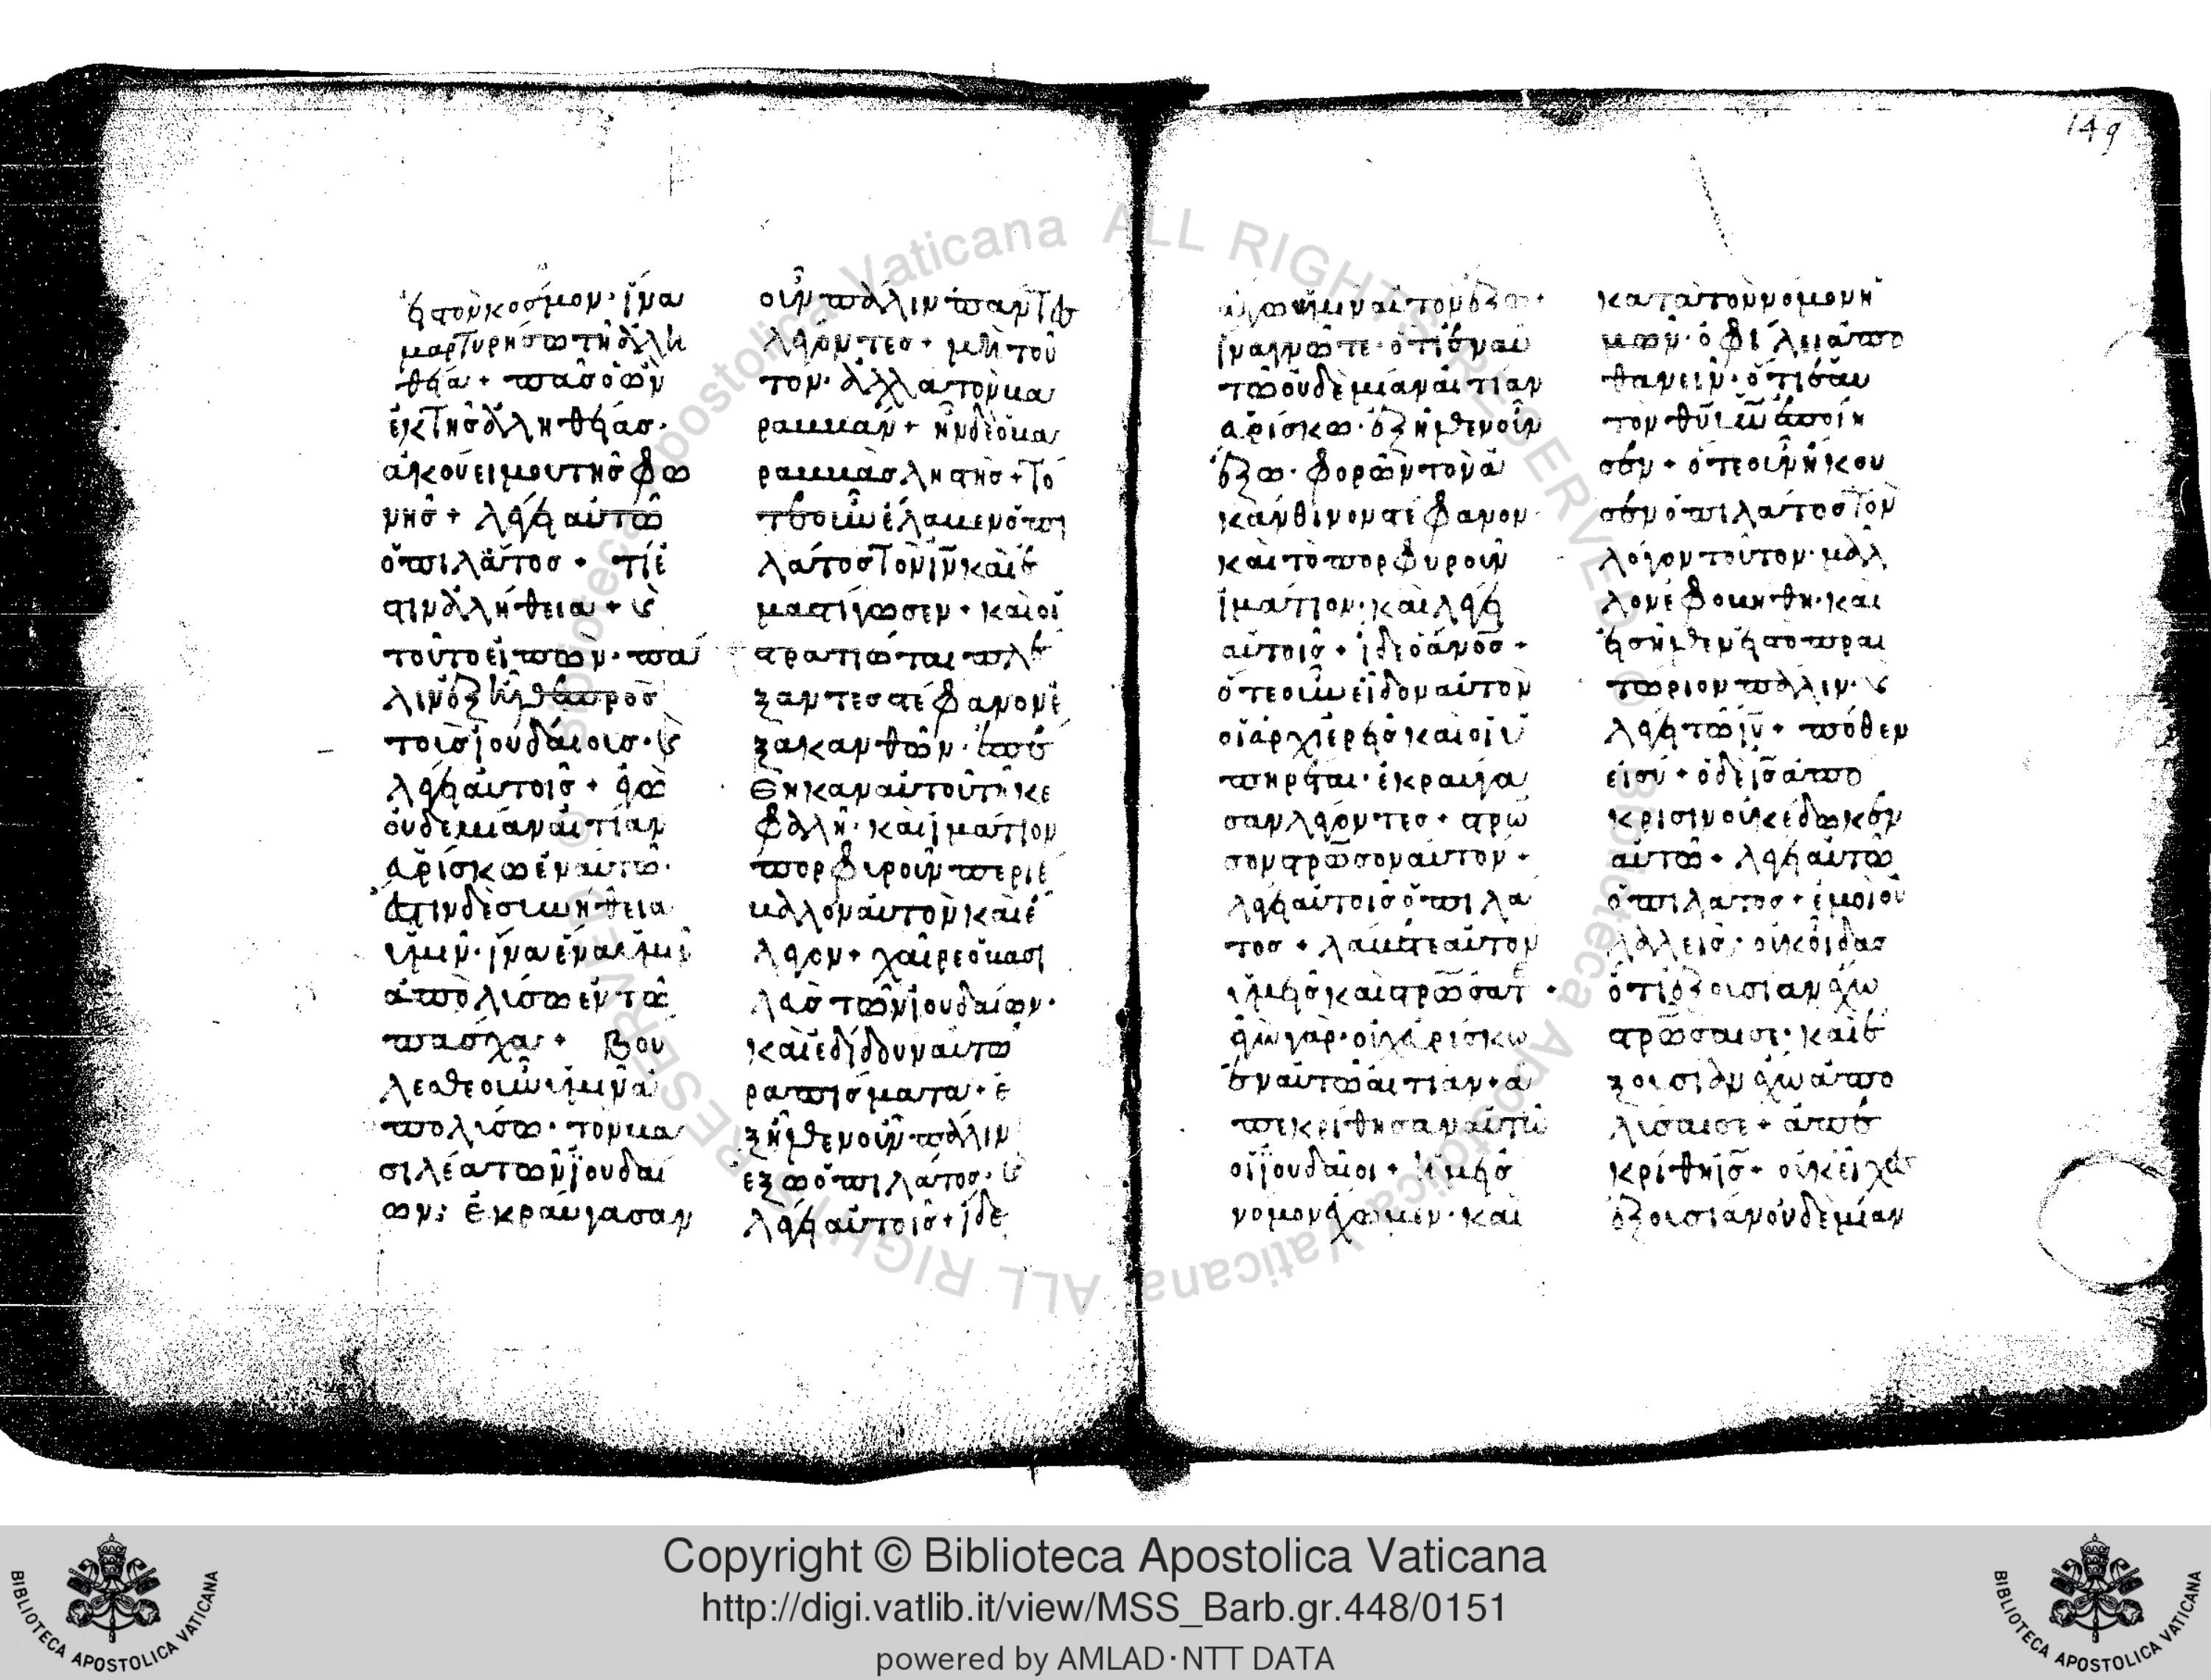 εἰς τὸν κόσμον· ἵνα
μαρτυρήσω τῇ ἀλη
θεία + πᾶς ὁ ὢν
ἐκ τῆς ἀληθείας·
ἀκούει μου τῆς φω
νῆς + λέγει αὐτῶ
ὁ πιλάτος + τί ἐ
στιν ἀλήθεια + καὶ
τοῦτο εἰπὼν· πά
λιν ἐξῆλθε πρὸς
τοὺς ἰουδαίους· καὶ
λέγει αὐτοῖς + ἐγὼ
οὐδεμίαν αἰτίαν
εὑρίσκω ἐν αὐτῶ·
ἔστιν δὲ συνήθεια
ὑμῖν· ἵνα ἕνα ὑμῖν
ἀπολύσω ἐν τῶ
πάσχα + βού
λεσθε οὖν ὑμῖν ἀ
πολύσω· τὸν βα
σιλέα τῶν ἰουδαί
ων; ἐκραύγασαν
οὖν πάλιν πάντες
λέγοντες + μὴ τοῦ
τον· ἀλλὰ τὸν βα
ραββάν + ἦν δὲ ὁ βα
ραββᾶς ληστής + τό
τε οὖν ἔλαβεν ὁ πι
λάτος τὸν ἰν καὶ ἐ
μαστίγωσεν + καὶ οἱ
στρατιῶται πλέ
ξαντες στέφανον ἐ
ξ ἀκανθῶν· ἐπέ
θηκαν αὐτοῦ τῇ κε
φαλῇ· καὶ ἱμάτιον
πορφυροῦν περιέ
βαλλον αὐτὸν καὶ ἔ
λεγον + χαῖρε ὁ βασι
λεὺς τῶν ἰουδαίων·
καὶ ἐδίδουν αὐτῶ
ραπίσματα + ἐ
ξῆλθεν οὖν πάλιν
ἔξω ὁ πιλάτος· καὶ
λέγει αὐτοῖς + ἴδε
ἄγω ὑμῖν αὐτὸν ἔξω·
ἵνα γνῶτε· ὅτι ἐν αὐ
τῶ οὐδεμίαν αἰτίαν
εὑρίσκω· ἐξῆλθεν οὖν
ἔξω· φορῶν τὸν ἀ
κάνθινον στέφανον·
καὶ τὸ πορφυροῦν
ἱμάτιον· καὶ λέγει
αὐτοῖς + ἴδε ὁ ανος +
ὅτε οὖν εἶδον αὐτὸν
οἱ ἀρχιερεῖς καὶ οἱ ὑ
πηρέται· ἐκραύγα
σαν λέγοντες + σταύρω
σον σταύρωσον αὐτόν +
λέγει αὐτοῖς ὁ πιλά
τος + λάβετε αὐτὸν
ὑμεῖς καὶ σταυρώσατε·
ἐγὼ γὰρ· οὐχ εὑρίσκω
ἐν αὐτῶ αἰτίαν + ἀ
πεκρίθησαν αὐτῶ
οἱ ἰουδαῖοι + ἡμεῖς
νόμον ἔχομεν· καὶ
κατὰ τὸν νόμον ἡ
μῶν· ὀφείλει ἀπο
θανεῖν· ὅτι ἑαυ
τὸν θυ υν ἐποίη
σεν + ὅτε οὖν ἤκου
σεν ὁ πιλάτος τὸν
λόγον τοῦτον· μᾶλ
λον ἐφοβήθη· καὶ
εἰσῆλθεν εἰς τὸ πραι
τώριον πάλιν· καὶ
λέγει τῶ ιυ + πόθεν
εἶ σύ + ὁ δὲ ις ἀπό
κρισιν οὐκ ἔδωκεν
αὐτῶ + λέγει αὐτῶ
ὁ πιλάτος + ἐμοὶ οὐ
λαλεῖς· οὐκ οἶδας
ὅτι ἐξουσίαν ἔχω
σταυρῶσαί σε· καὶ ἐ
ξουσίαν ἔχω ἀπο
λῦσαί σε + ἀπε
κρίθη ις + οὐκ εἶχες
ἐξουσίαν οὐδεμίαν
149
Copyright © Biblioteca Apostolica Vaticana
http://digi.vatlib.it/view/MSS_Barb.gr.448/0151
powered by AMLAD·NTT DATA
BIBLIOTECA APOSTOLICA VATICANA
BIBLIOTECA APOSTOLICA VATICANA